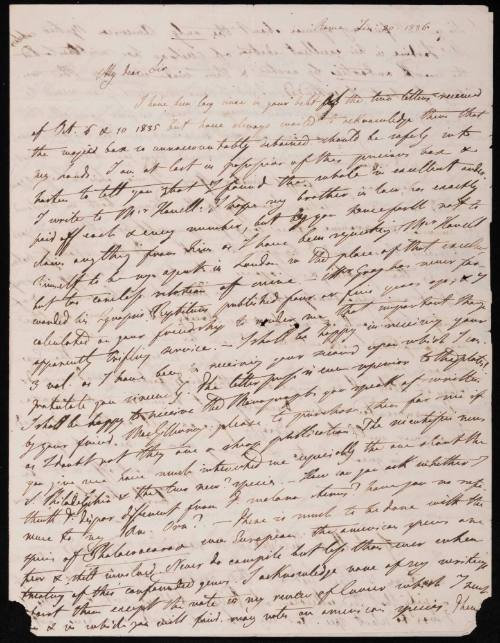 Rome Jan. 20 1836
My dear Sir
I have been long since in your debt for the two letters received
of Oct. 5 & 10 1835 but have always would to acknowledge them that
the magical box so unaccountably retained should be safely into
my hands. I am at last in possession of this precious box &
hasten to tell you that I found the whole in excellent order.
I write to Mr. Havell. I hope my brother in law so exactly
paid off each & every number, but beg you henceforth not to
draw anything from him as I have been requesting Mr. Havell
himself to be my agent in London in the place of that excellent
but too careless relation of mine. — Mr. Gray has never for-
warded his Synopsis Reptilium published four or five years ago & I
calculated on your friendship to render me that important though
apparently trifling service. — I shall be happy in receiving your
3 vol. as I have been in receiving your second upon which I con-
gratulate you sincerely. The letter press is even superior to the plates.
I shall be happy to receive the Monographs you speak of written
by your friend MacGillivray please to purchase them for me if
as I doubt not they are a cheap publication. The news
you give me have much interested me especially the one about the
S. Philadelphia & the two new species. — How can you ask whether I
think D. dispar different from F. melano leucus? have you no more
more to my Am. Orn.? — There is much to be done with the
species of Phalacrocorax even European, the american species are
few & still involved. Never do compile but less than ever when
treating of this confounded genus. I acknowledge none of my writing
about them except the note in my review of Cuvier which I sent
you & in which you will find may notes on american species. I have